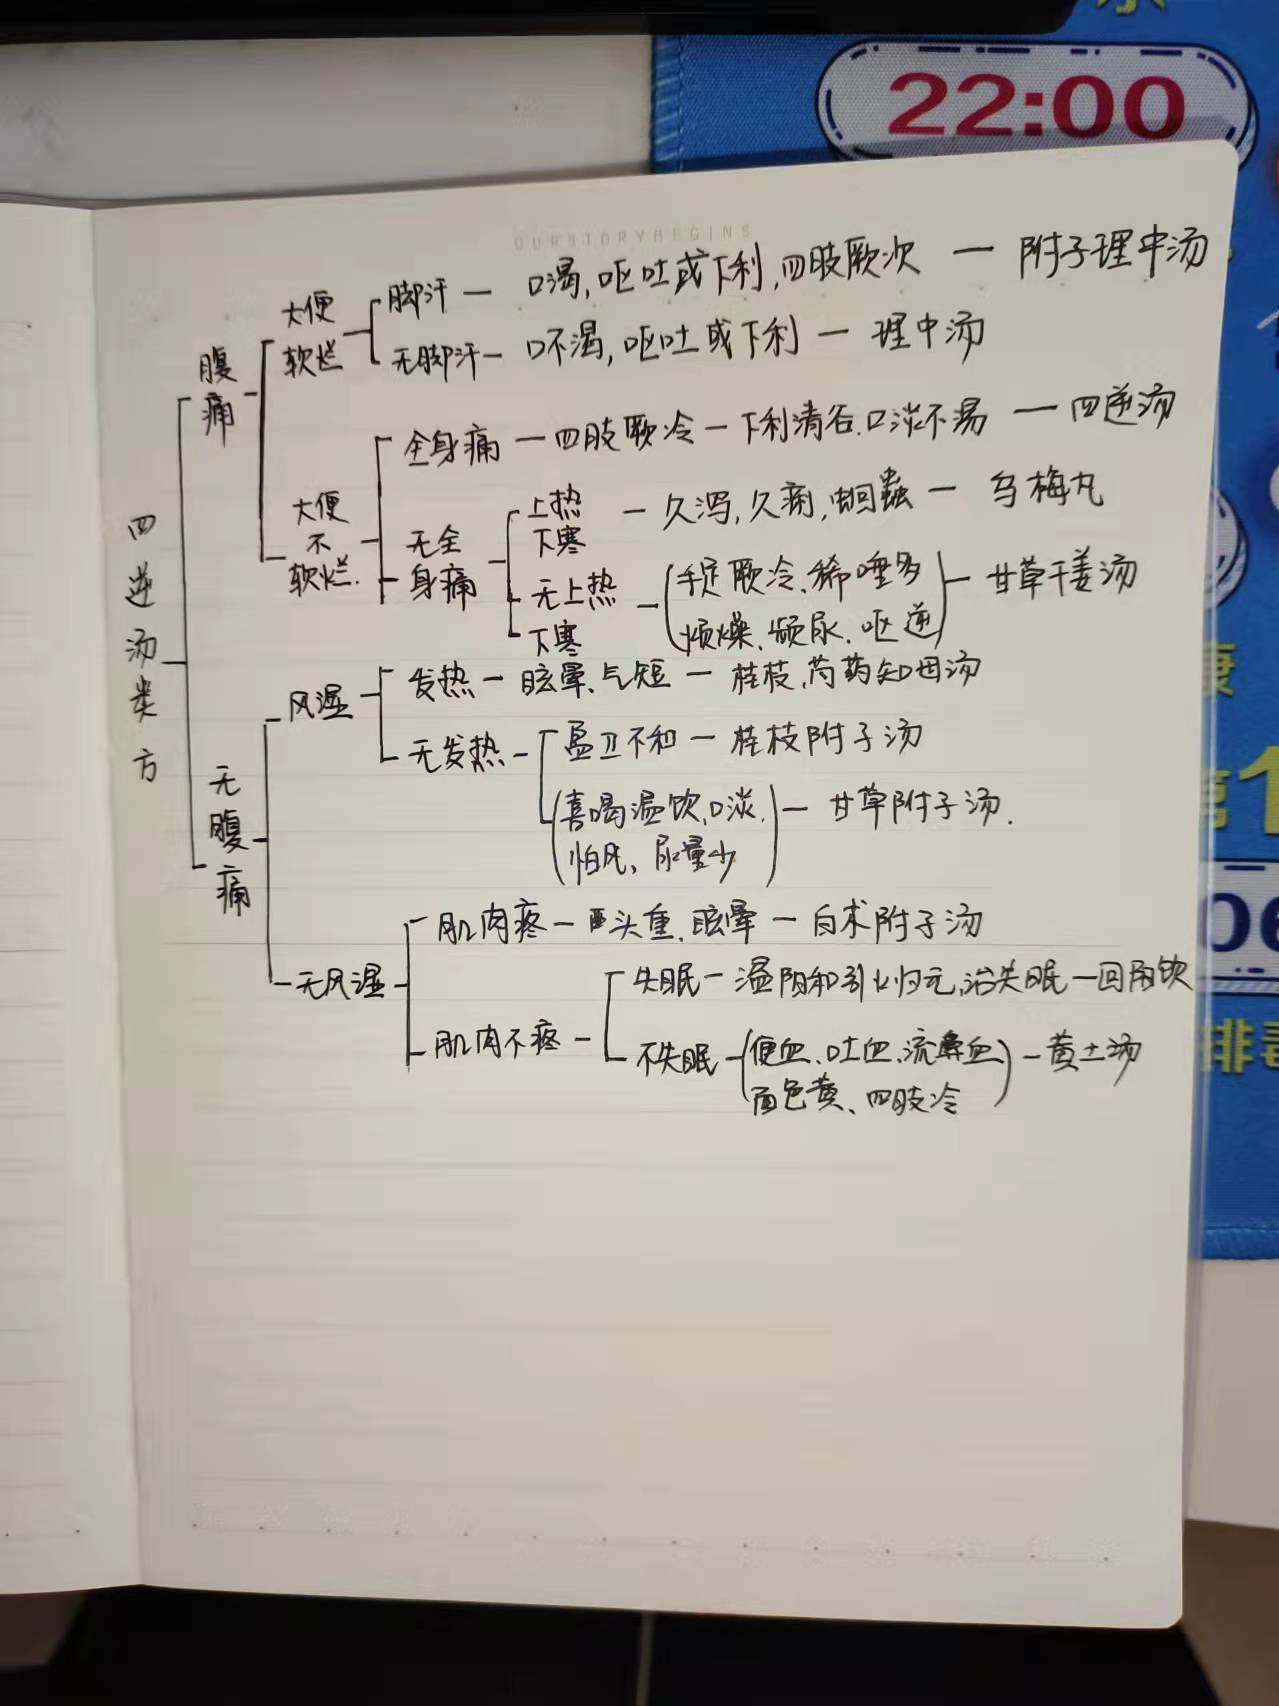 22:00
OURSTORYBEGINS
四逆汤类方
腹痛
大便软烂
脚汗 — 口渴,呕吐或下利,四肢厥次 — 附子理中汤
无脚汗 — 口不渴,呕吐或下利 — 理中汤
大便不软烂.
全身痛 — 四肢厥冷 — 下利清谷.口淡不渴 — 四逆汤
无全身痛
上热下寒 — 久泻,久痢,蛔蟲 — 乌梅丸
无上热下寒
手足厥冷、稀唾多
烦燥、频尿、呕逆
— 甘草干姜汤
无腹痛
风湿
发热 — 眩晕、气短 — 桂枝,芍药知母汤
无发热
盈卫不和 — 桂枝附子汤
喜喝温饮,口淡.
怕风、尿量少
— 甘草附子汤.
无风湿
肌肉疼 — 头重、眩晕 — 白术附子汤
肌肉不疼
失眠 — 温阳和引火归元,治失眠 — 回阳饮
不失眠
便血、吐血、流鼻血
面色黄、四肢冷
— 黄土汤
康
第1
06
排毒